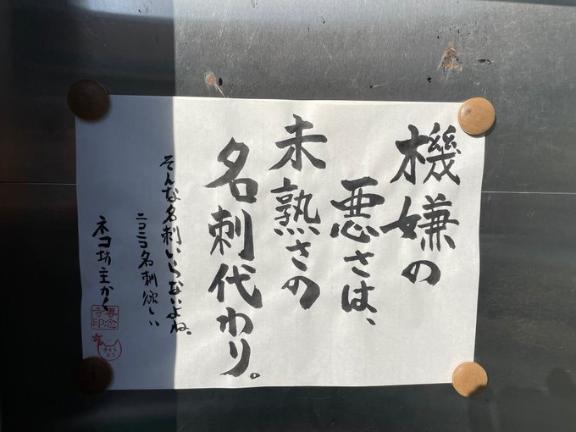 機嫌の
悪さは、
未熟さの
名刺代わり。
そんな名刺、いらないよね。
ニコニコ名刺欲しい
ネコ坊主かく